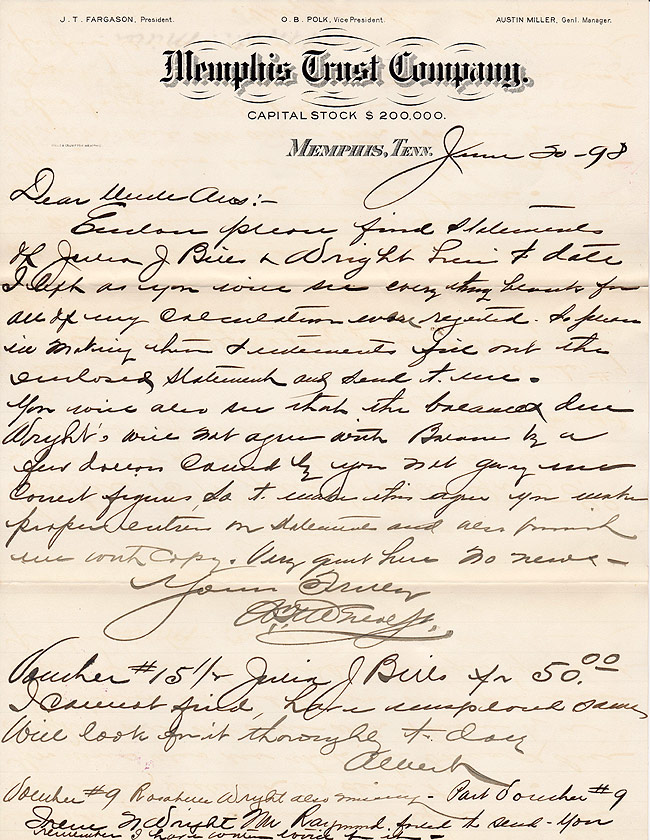 J. T. FARGASON, President. O. B. POLK, Vice President. AUSTIN MILLER, Genl. Manager.
Memphis Trust Company.
CAPITAL STOCK $ 200,000.
MEMPHIS, TENN. June 30-98
Dear Uncle :-
please find Statements
of Julia J Bills & Wright to date
I as you will see everything for
all of my Calculations were rejected. So please
in making them Statements fill out the
enclosed Statement and send to me.
You will also see that the balance due
Wright's will not agree with by a
few dollars Caused by you not giving me
Correct figures, So to make this agree you make
proper entries on Statements and also furnish
me with Copy. Very quiet here no news-
Yours Truly
Voucher #15 1/2 Julia J Bills for 50.00
I cannot find, have same
Will look for it to day
Albert
Voucher #9 Wright also missing - Part Voucher #9
Irene N Wright Mr Raymond to send - You
remember I have for it -